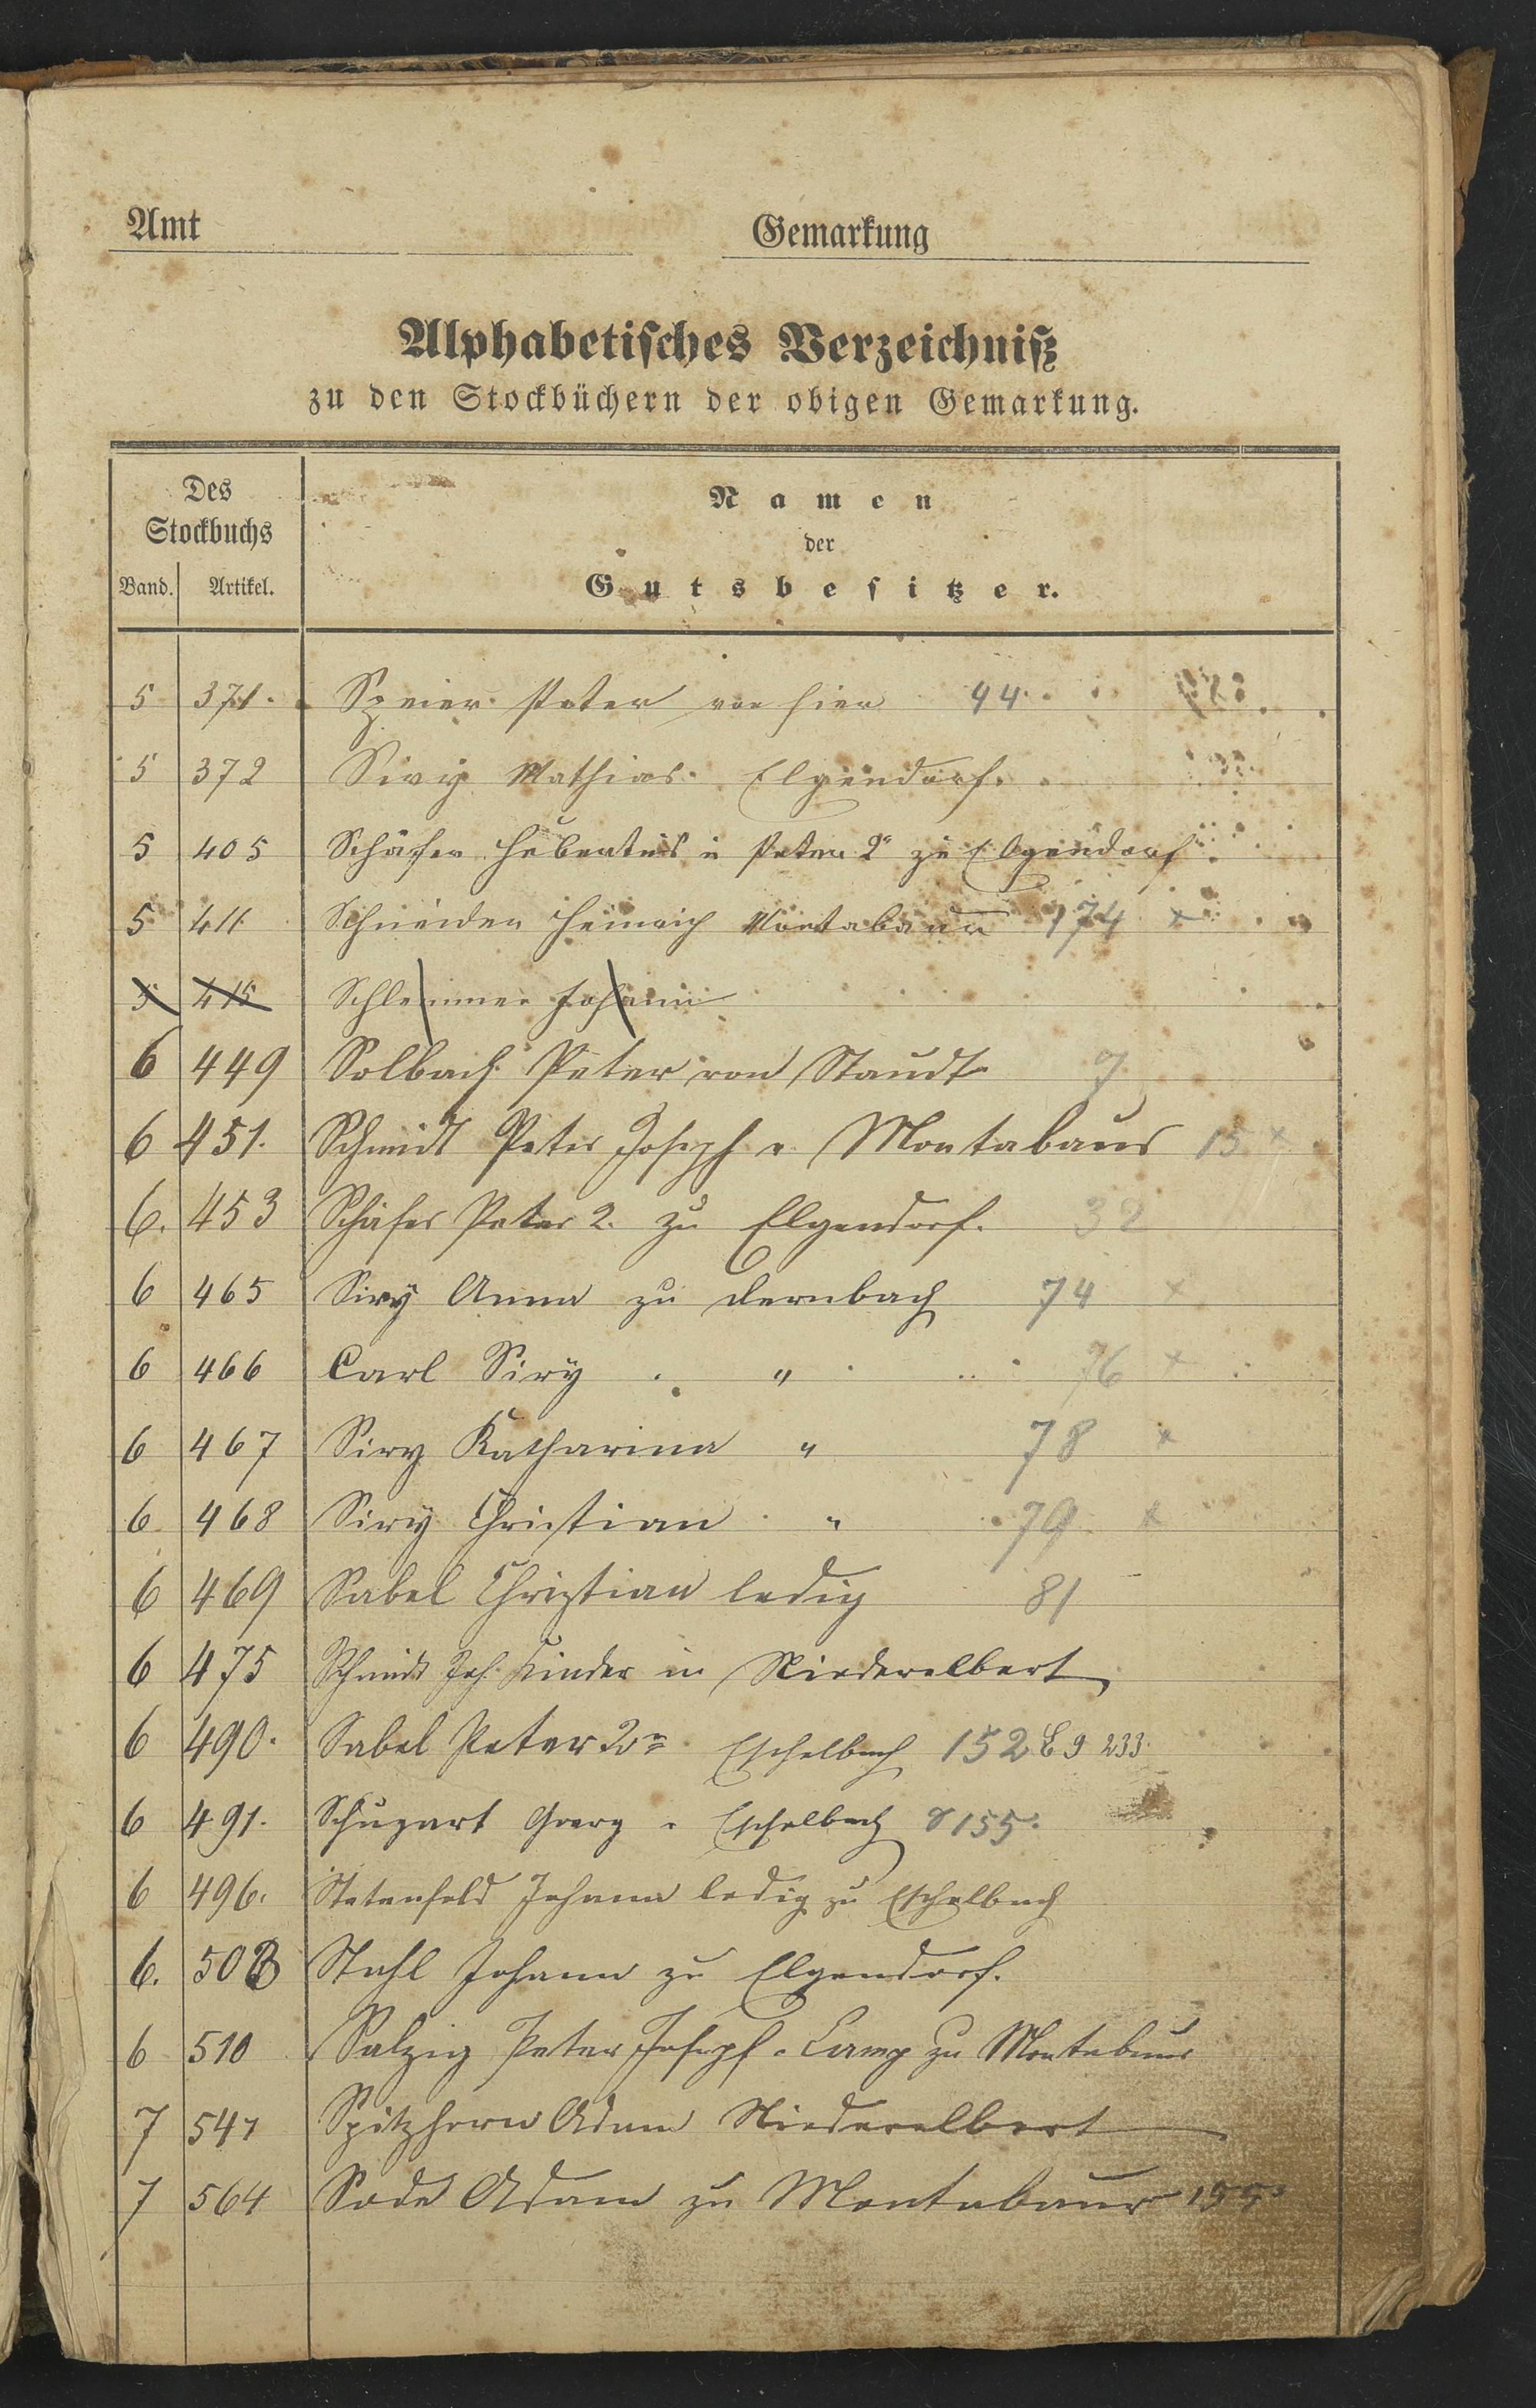 Amt
Gemarkung
Alphabetisches Verzeichniß
zu den Stockbüchern der obigen Gemarkung.
Des Stockbuchs
Namen
der
Gutsbesitzer.
Band. Artikel.
5 371. Speier Peter von hier 44
5 372 Siry Mathias Elgendorf.
5 405 Schäfer Hubertus u Peter 2r zu Elgendorf
5 411 Schneider Heinrich Montabaur 174 x
5 415 Schlemmer Johann
6 449 Solbach Peter von Staudt 9
6 451. Schmidt Peter Joseph v. Montabaur 15 x
6. 453 Schäfer Peter 2. zu Elgendorf. 32
6 465 Siry Anna zu Dernbach 74 x
6 466 Carl Siry " 76 x
6 467 Siry Katharina " 78 x
6 468 Siry Christian " 79 x
6 469 Sabel Christian ledig 81
6 475 Schmidt Joh. Kinder in Niederelbert
6 490. Sabel Peter 2r Eschelbach 152 233
6 491. Schugart Georg Eschelbach 155
6 496. Johann ledig zu Eschelbach
6. 50 Stahl Johann zu Elgendorf.
6 510 Salzig Peter Joseph zu Montabaur
7 547 Spitzhorn Adam Niederelbert
7 564 Sode Adam zu Montabaur